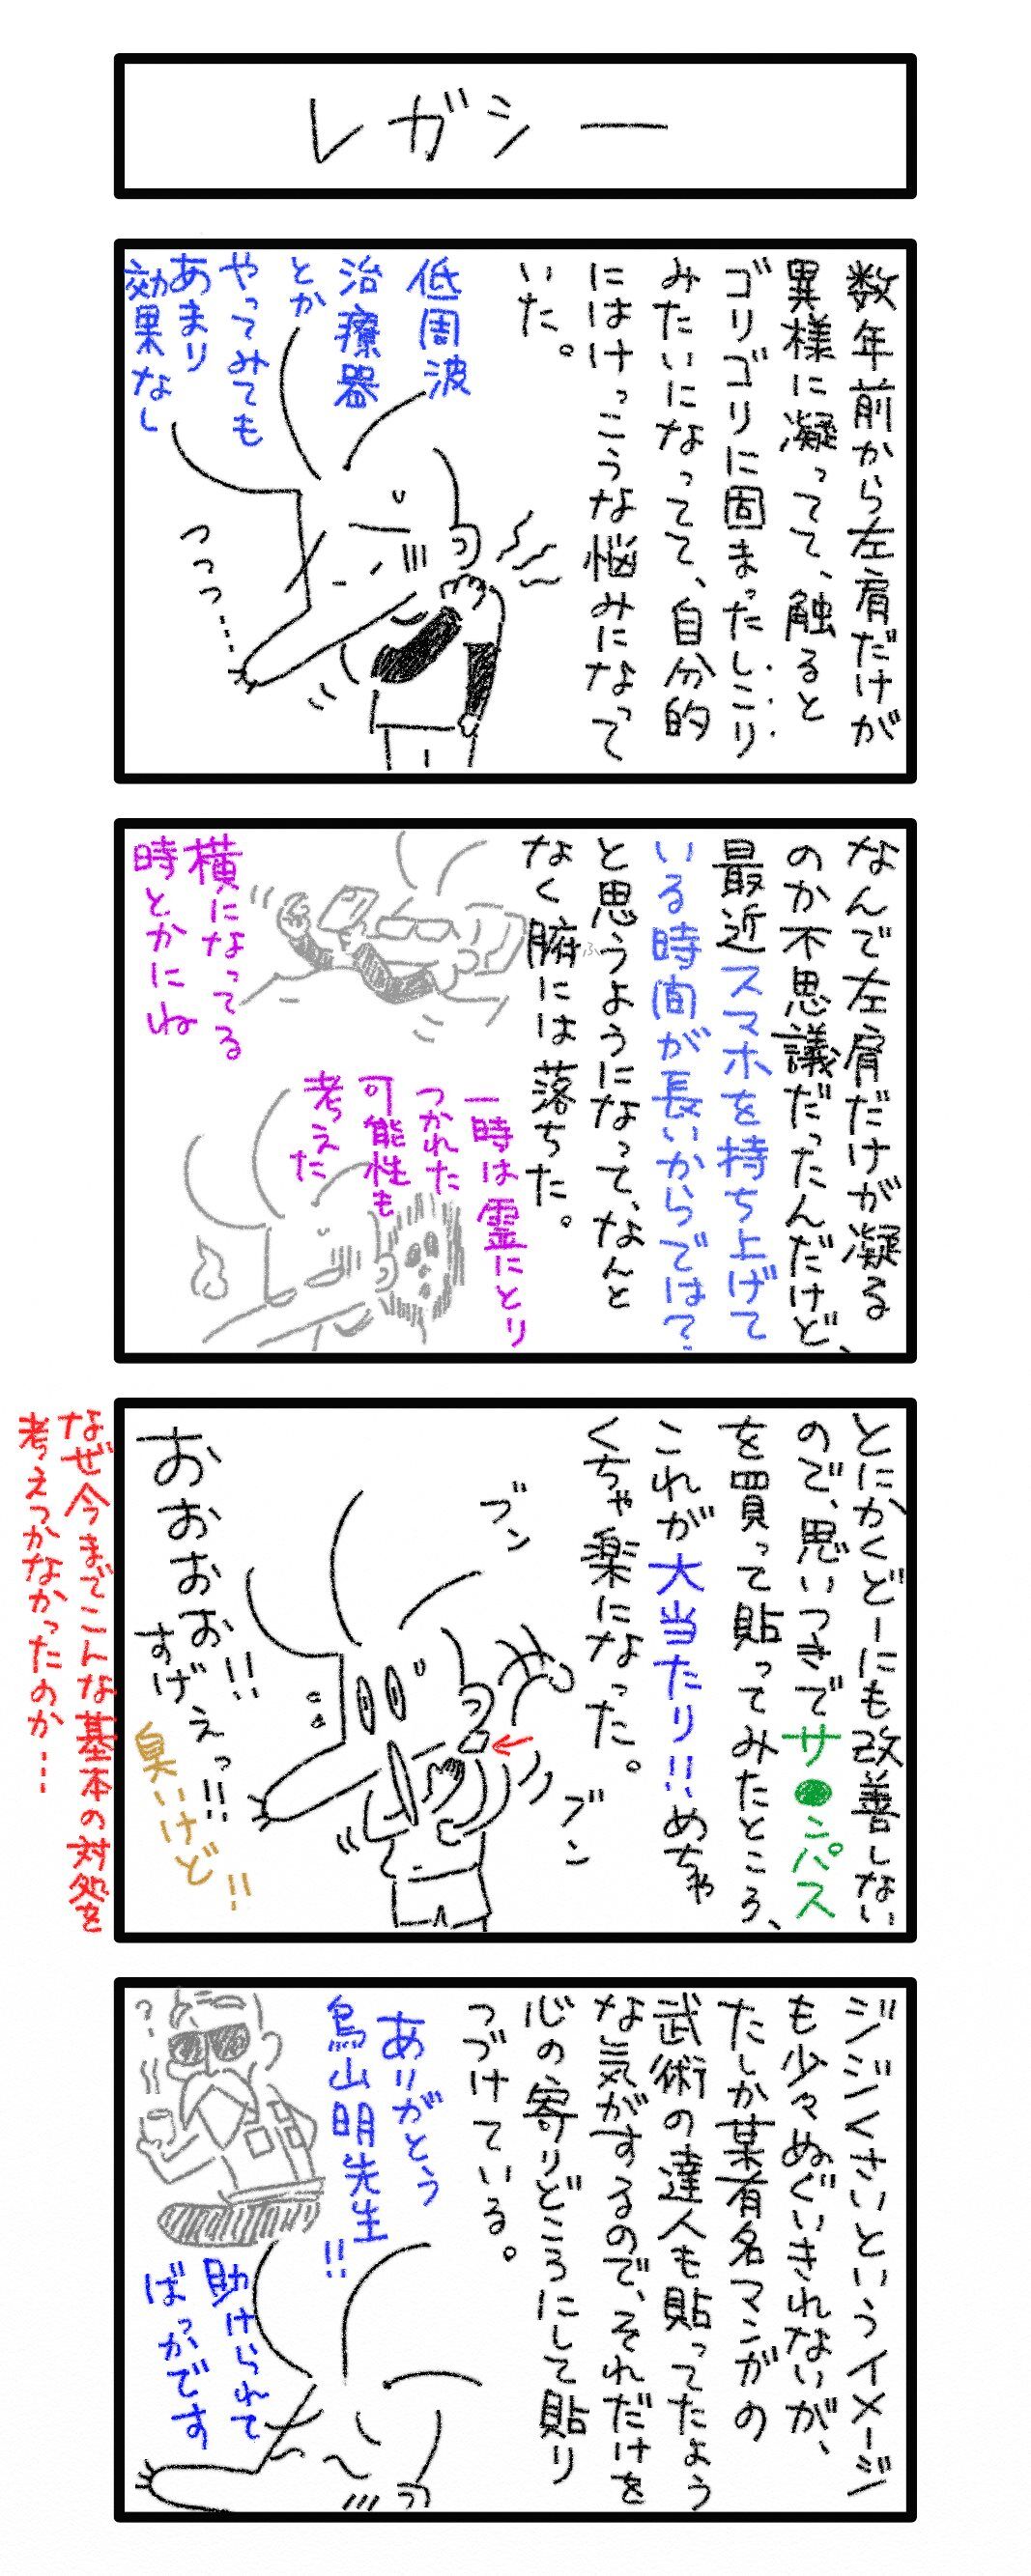 レガシー
数年前から左肩だけが
異様に凝ってて、触ると
ゴリゴリに固まったしこり
みたいになってて、自分的
にはけっこうな悩みになって
いた。
低周波
治療器
とか
やってみても
あまり
効果なし
つつつ…
なんで左肩だけが凝る
のか不思議だったんだけど、
最近スマホを持ち上げて
いる時間が長いからでは?
と思うようになって、なんと
なく腑には落ちた。
ふ
横になってる
時とかにね
一時は霊にとり
つかれた
可能性も
考えた
とにかくどーにも改善しない
ので、思いつきでサ●ンパス
を買って貼ってみたところ、
これが大当たり!!めちゃ
くちゃ楽になった。
ブン
ブン
おおおお!!
すげえっ!!
臭いけど!!
なぜ今までこんな基本の対処を
考えつかなかったのか…
ジジくさいというイメージ
も少々ぬぐいきれないが、
たしか某有名マンガの
武術の達人も貼ってたよう
な気がするので、それだけを
心の寄りどころにして貼り
つづけている。
ありがとう
鳥山明先生!!
?
助けられて
ばっかです